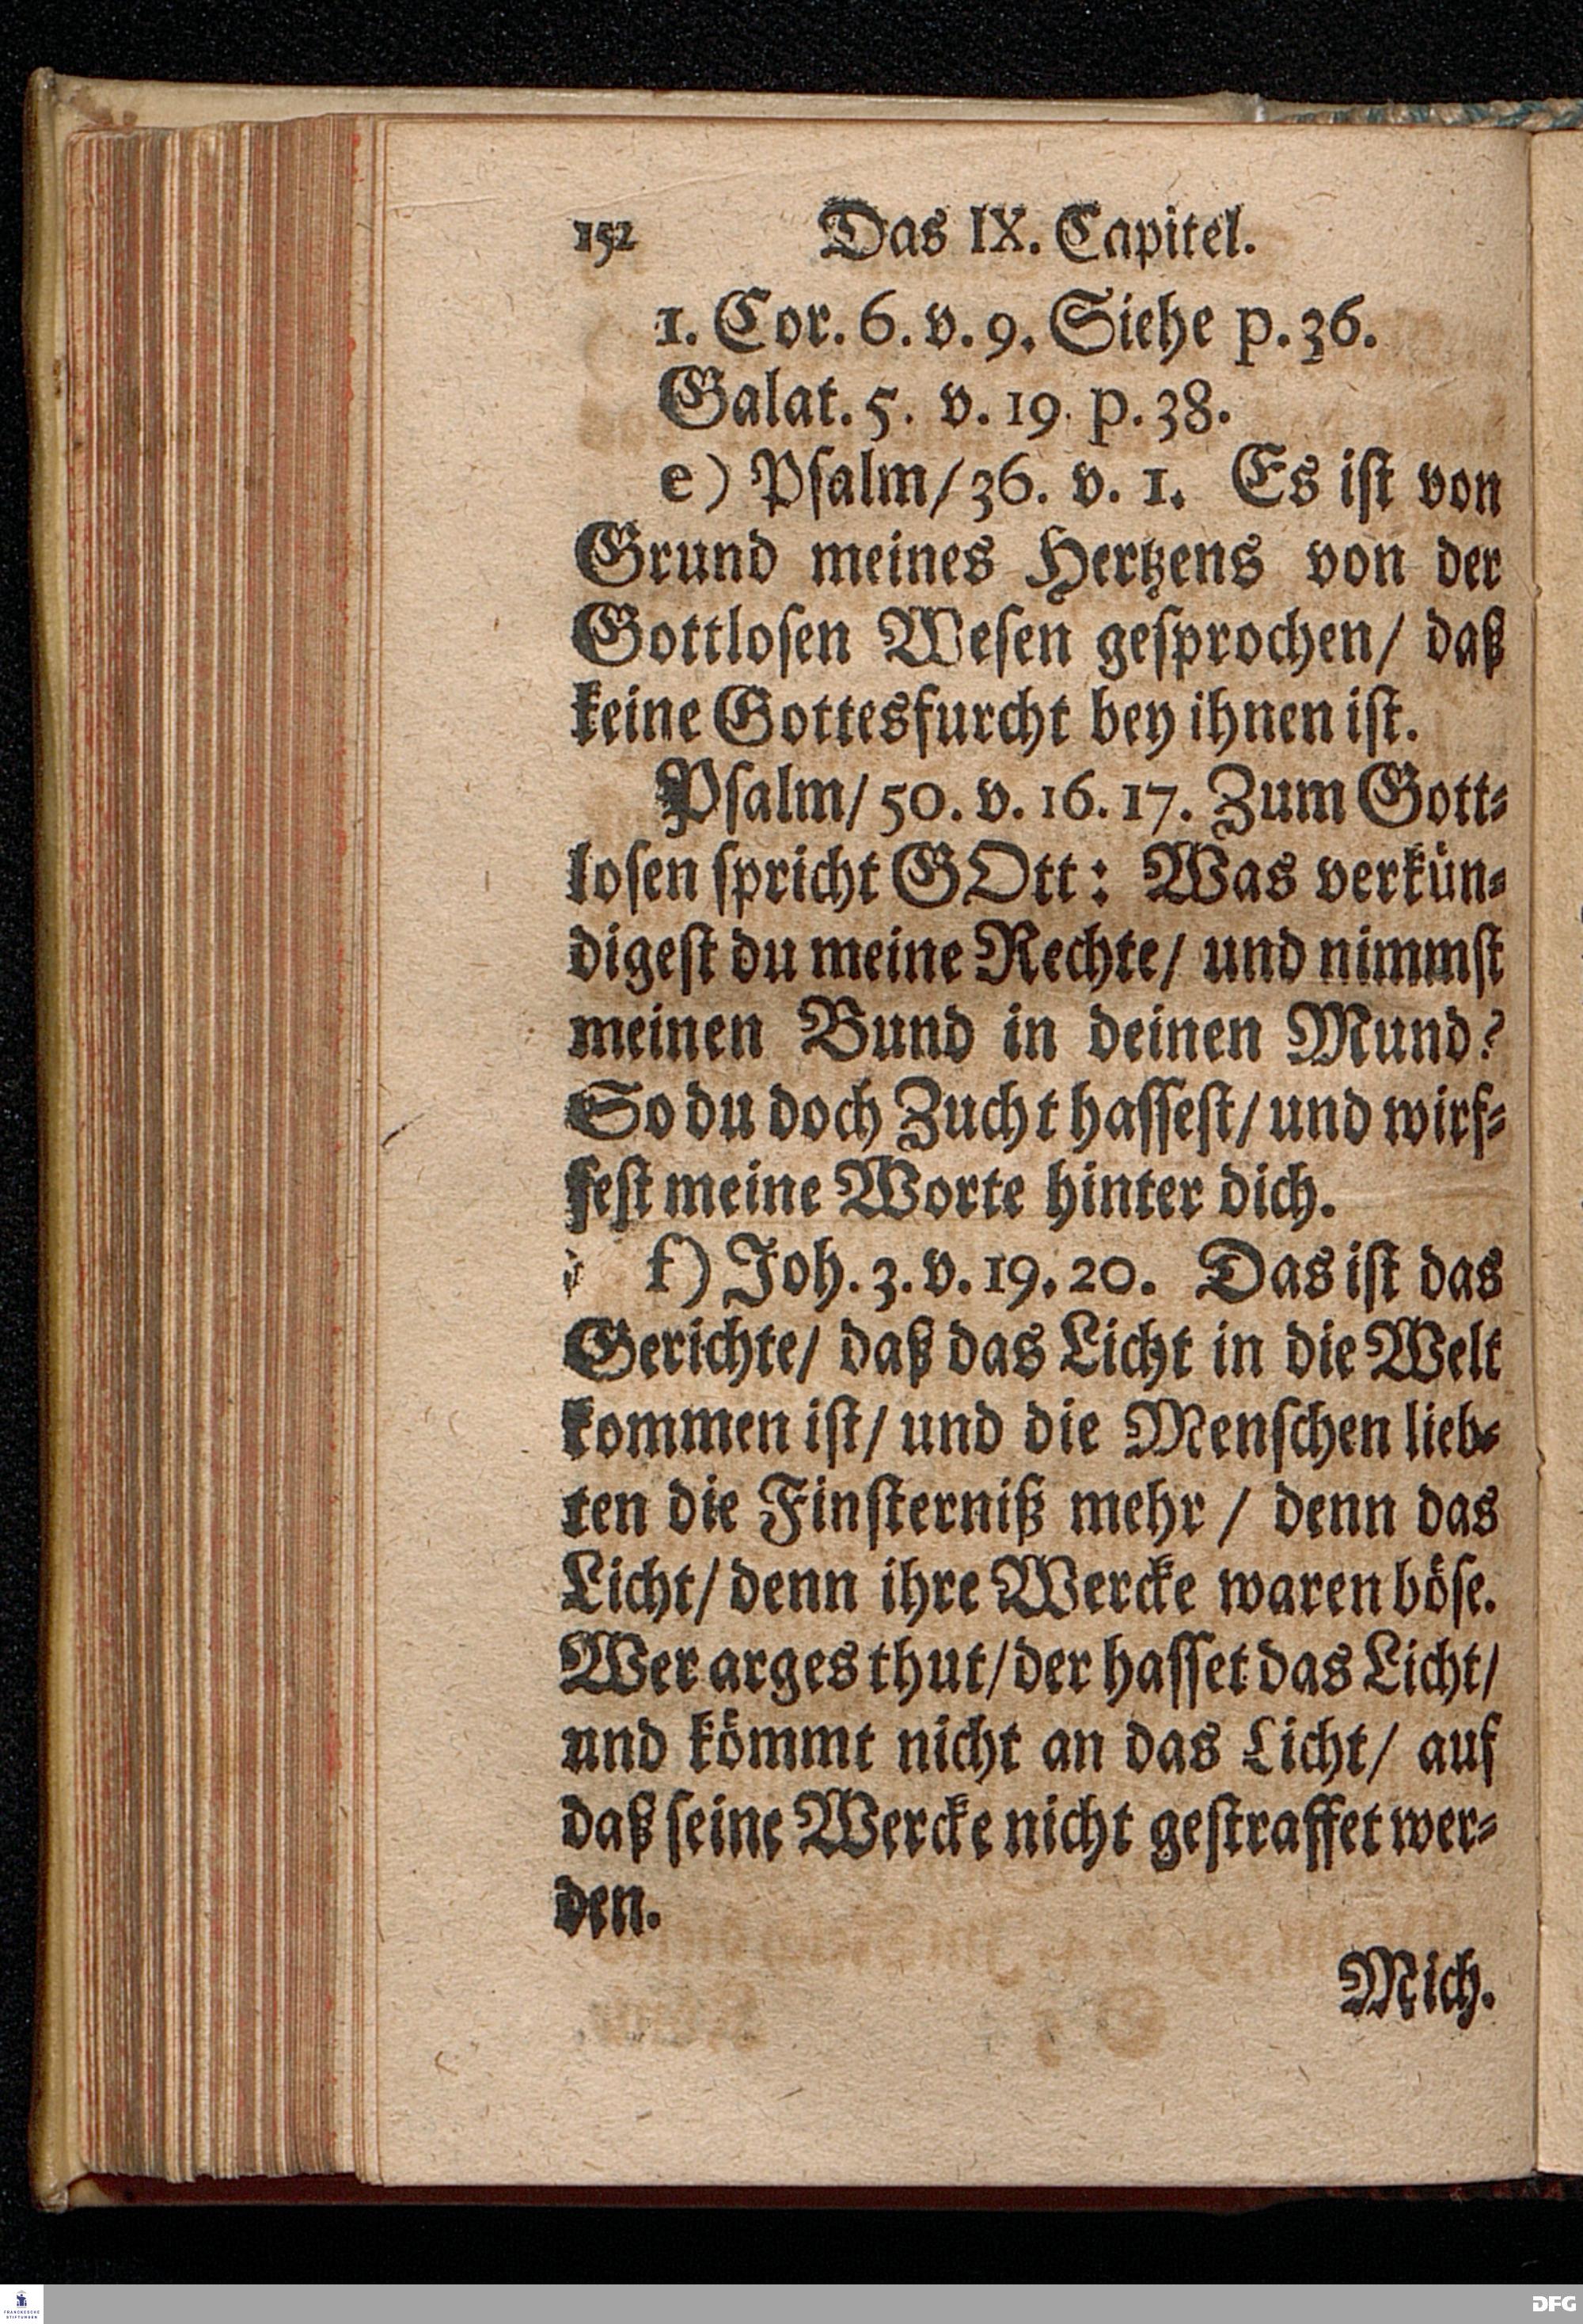 152 Das IX. Capitel.
1. Cor. 6. v. 9. Siehe p. 36.
Galat. 5. v. 19. p. 38.
e) Psalm/ 36. v. 1. Es ist von
Grund meines Hertzens von der
Gottlosen Wesen gesprochen/ daß
keine Gottesfurcht bey ihnen ist.
Psalm/ 50. v. 16. 17. Zum Gott⸗
losen spricht GOtt: Was verkün⸗
digest du meine Rechte/ und nimmst
meinen Bund in deinen Mund?
So du doch Zucht hassest/ und wirf⸗
fest meine Worte hinter dich.
f) Joh. 3. v. 19. 20. Das ist das
Gerichte/ daß das Licht in die Welt
kommen ist/ und die Menschen lieb⸗
ten die Finsterniß mehr / denn das
Licht/ denn ihre Wercke waren böse.
Wer arges thut/ der hasset das Licht/
und kömmt nicht an das Licht/ auf
daß seine Wercke nicht gestraffet wer⸗
den.
Mich.
FRANCKESCHE
STIFTUNGEN
DFG